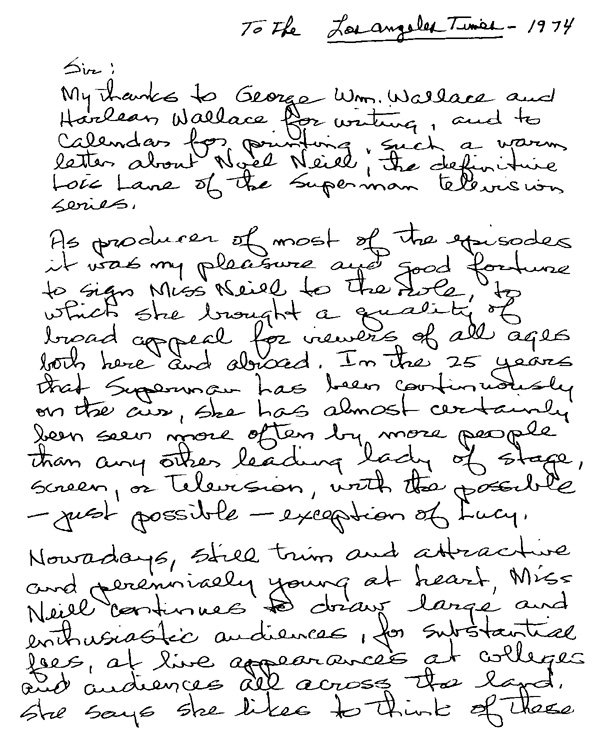 To the Los Angeles Times - 1974
Sir:
My thanks to George Wm. Wallace and
Harlean Wallace for writing, and to
Calendar for printing, such a warm
letter about Noel Neill, the definitive
Lois Lane of the Superman television
series.
As producer of most of the episodes
it was my pleasure and good fortune
to sign Miss Neill to the role, to
which she brought a quality of
broad appeal for viewers of all ages
both here and abroad. In the 25 years
that Superman has been continuously
on the air, she has almost certainly
been seen more often by more people
than any other leading lady of stage,
screen, or television, with the possible
— just possible — exception of Lucy.
Nowadays, still trim and attractive
and perennially young at heart, Miss
Neill continues to draw large and
enthusiastic audiences, for substantial
fees, at live appearances at colleges
and audiences all across the land.
She says she likes to think of these